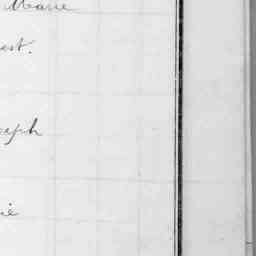 Marie
est.
seph
ie